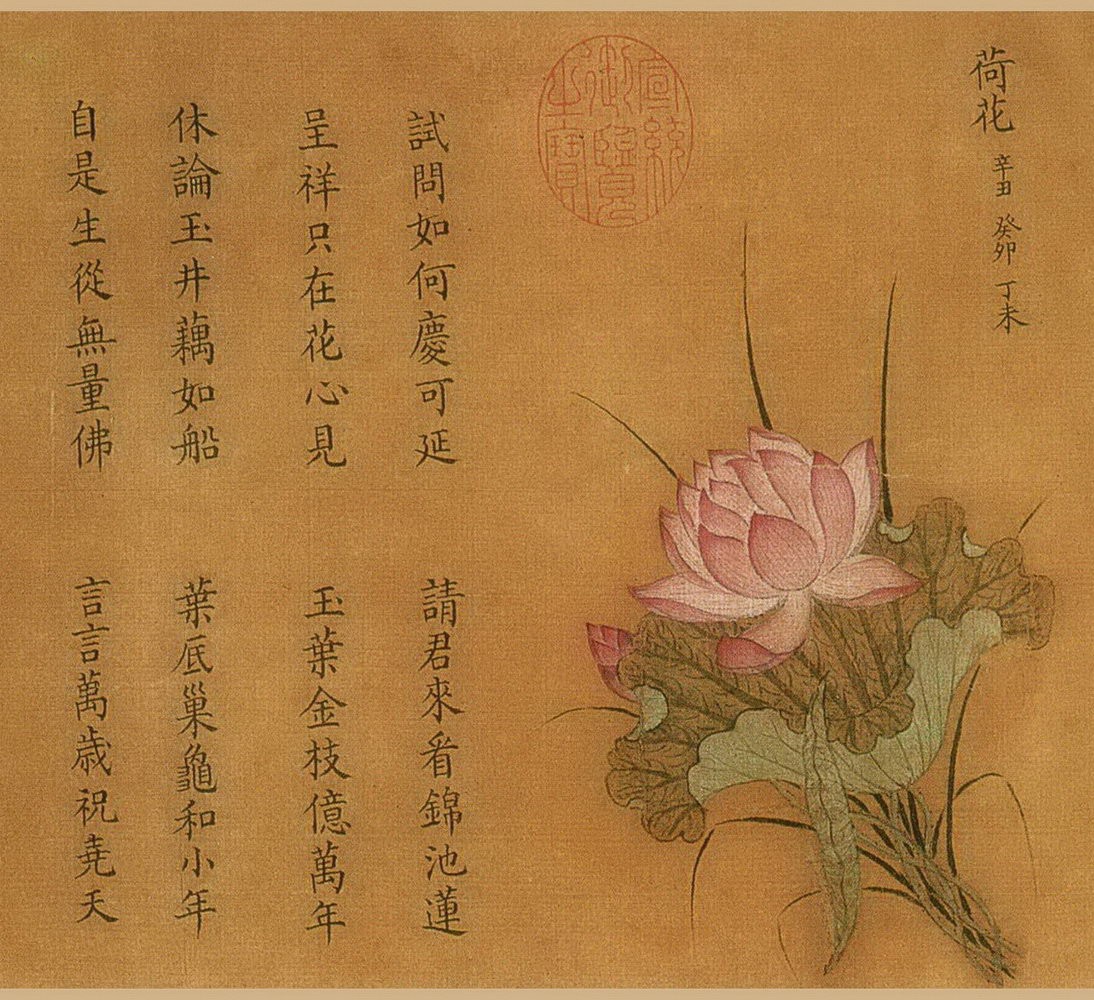 荷花 辛丑 癸卯 丁未
宣統御覽之寶
試問如何慶可延 請君來看錦池蓮
呈祥只在花心見 玉葉金枝億萬年
休論玉井藕如船 葉底巢龜和小年
自是生從無量佛 言言萬歳祝堯天